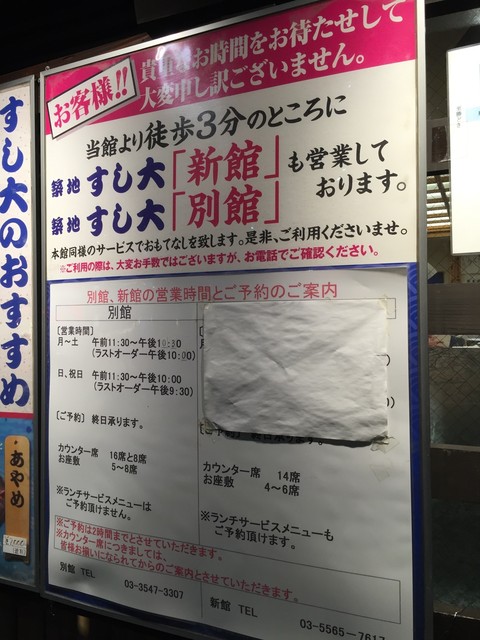 お客様!!
貴重なお時間をお待たせして
大変申し訳ございません。
当館より徒歩3分のところに
築地 すし大「新館」も営業して
築地 すし大「別館」おります。
本館同様のサービスでおもてなしを致します。是非、ご利用くださいませ。
※ご利用の際は、大変お手数ではございますが、お電話でご確認ください。
すし大のおすすめ
あやめ
別館、新館の営業時間とご予約のご案内
別館
[営業時間]
月～土 午前11:30～午後10:30
(ラストオーダー午後10:00)
日、祝日 午前11:30～午後10:00
(ラストオーダー午後9:30)
[ご予約] 終日承ります。
カウンター席 16席と8席
お座敷 5～8席
※ランチサービスメニューは
ご予約頂けません。
[ご予約] 終日承ります。
カウンター席 14席
お座敷 4～6席
※ランチサービスメニューも
ご予約頂けます。
※ご予約は2時間までとさせていただきます。
※カウンター席につきましては、
皆様お揃いになられてからのご案内とさせていただきます。
別館 TEL 03-3547-3307
新館 TEL 03-5565-7617